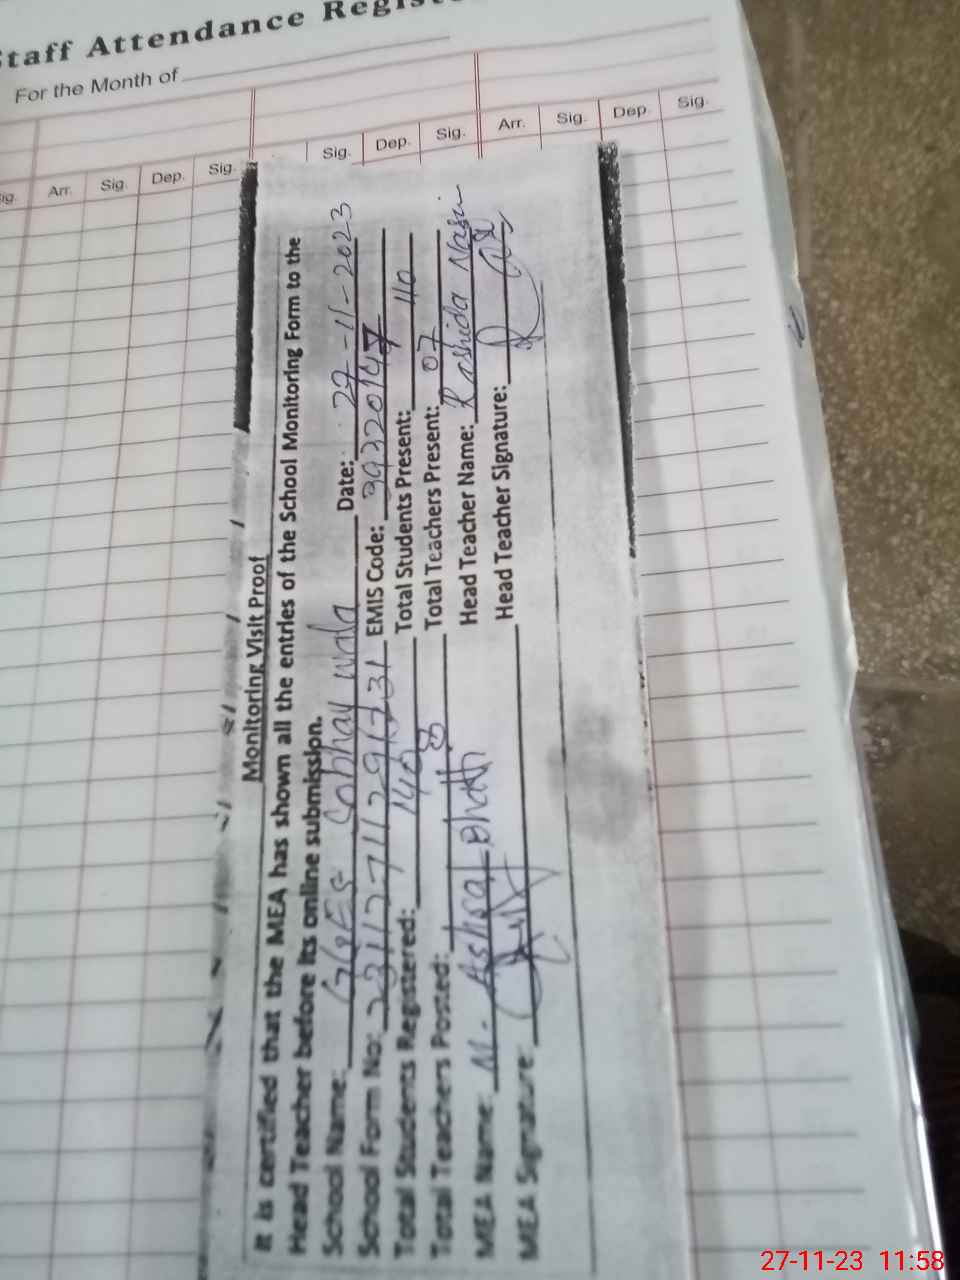 Staff Attendance Regist
For the Month of
Sig. Dep. Sig. Arr. Sig. Dep. Sig.
Sig. Arr. Sig. Dep. Sig.
Monitoring Visit Proof
It is certified that the MEA has shown all the entries of the School Monitoring Form to the
Head Teacher before its online submission.
School Name: Date: 27-11-2023
School Form No: EMIS Code: 39320147
Total Students Registered: 140 Total Students Present: 110
Total Teachers Posted: 8 Total Teachers Present: 07
MEA Name: M. Ashraf Bhatti Head Teacher Name: Rashida Nasir
MEA Signature: Head Teacher Signature:
27-11-23 11:58